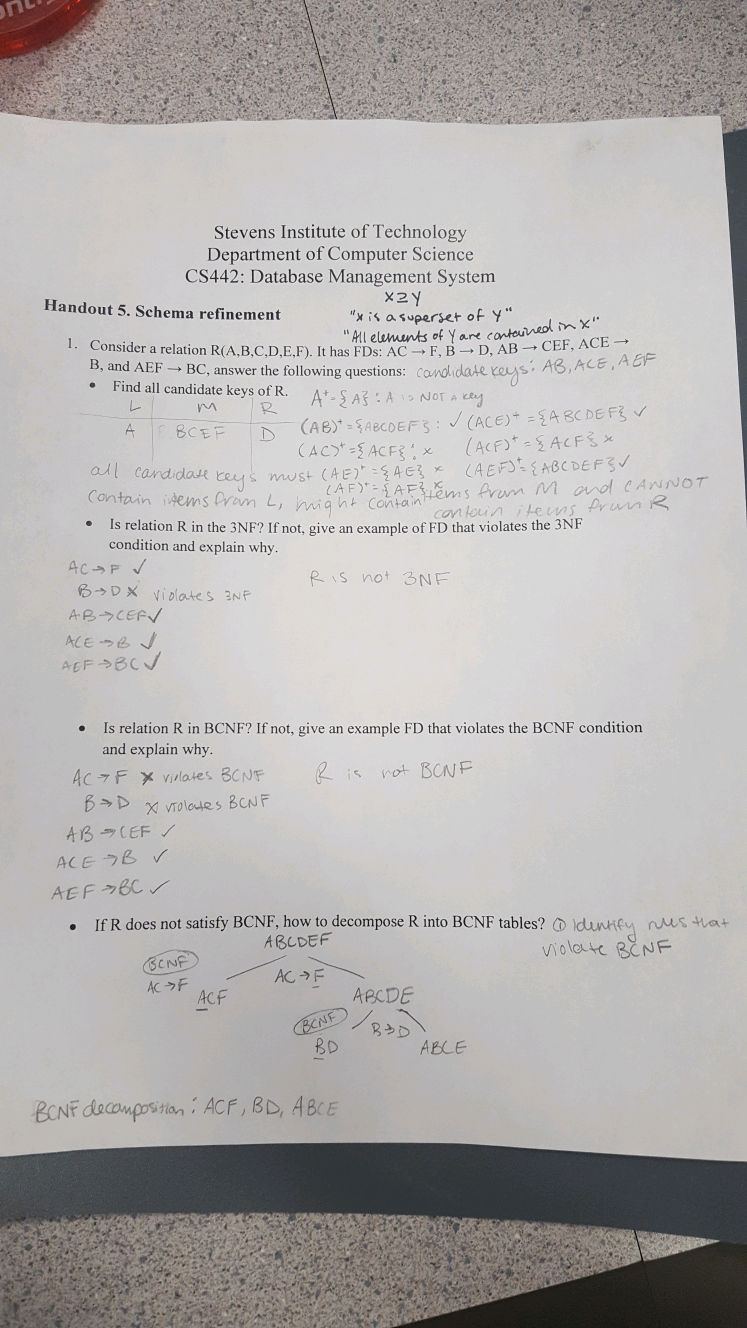 Stevens Institute of Technology
Department of Computer Science
CS442: Database Management System
X⊇Y
Handout 5. Schema refinement
"x is a superset of Y"
"All elements of Y are contained in X"
1. Consider a relation R(A,B,C,D,E,F). It has FDs: AC → F, B → D, AB → CEF, ACE →
B, and AEF → BC, answer the following questions: candidate keys: AB, ACE, AEF
• Find all candidate keys of R. A⁺ = {A} : A is NOT a key
L M R
A BCEF D (AB)⁺ = {ABCDEF} : ✓ (ACE)⁺ = {ABCDEF} ✓
(AC)⁺ = {ACF} : x (ACF)⁺ = {ACF} x
all candidate keys must (AE)⁺ = {AE} x (AEF)⁺ = {ABCDEF} ✓
(AF)⁺ = {AF} x
contain items from L, might contain items from M and CANNOT
contain items from R
• Is relation R in the 3NF? If not, give an example of FD that violates the 3NF
condition and explain why.
AC → F ✓
R is not 3NF
B → D X violates 3NF
AB → CEF ✓
ACE → B ✓
AEF → BC ✓
• Is relation R in BCNF? If not, give an example FD that violates the BCNF condition
and explain why.
AC → F X violates BCNF R is not BCNF
B → D X violates BCNF
AB → CEF ✓
ACE → B ✓
AEF → BC ✓
• If R does not satisfy BCNF, how to decompose R into BCNF tables? ① Identify rules that
violate BCNF
ABCDEF
BCNF
AC → F AC → F
ACF ABCDE
BCNF B → D
BD ABCE
BCNF decomposition : ACF, BD, ABCE